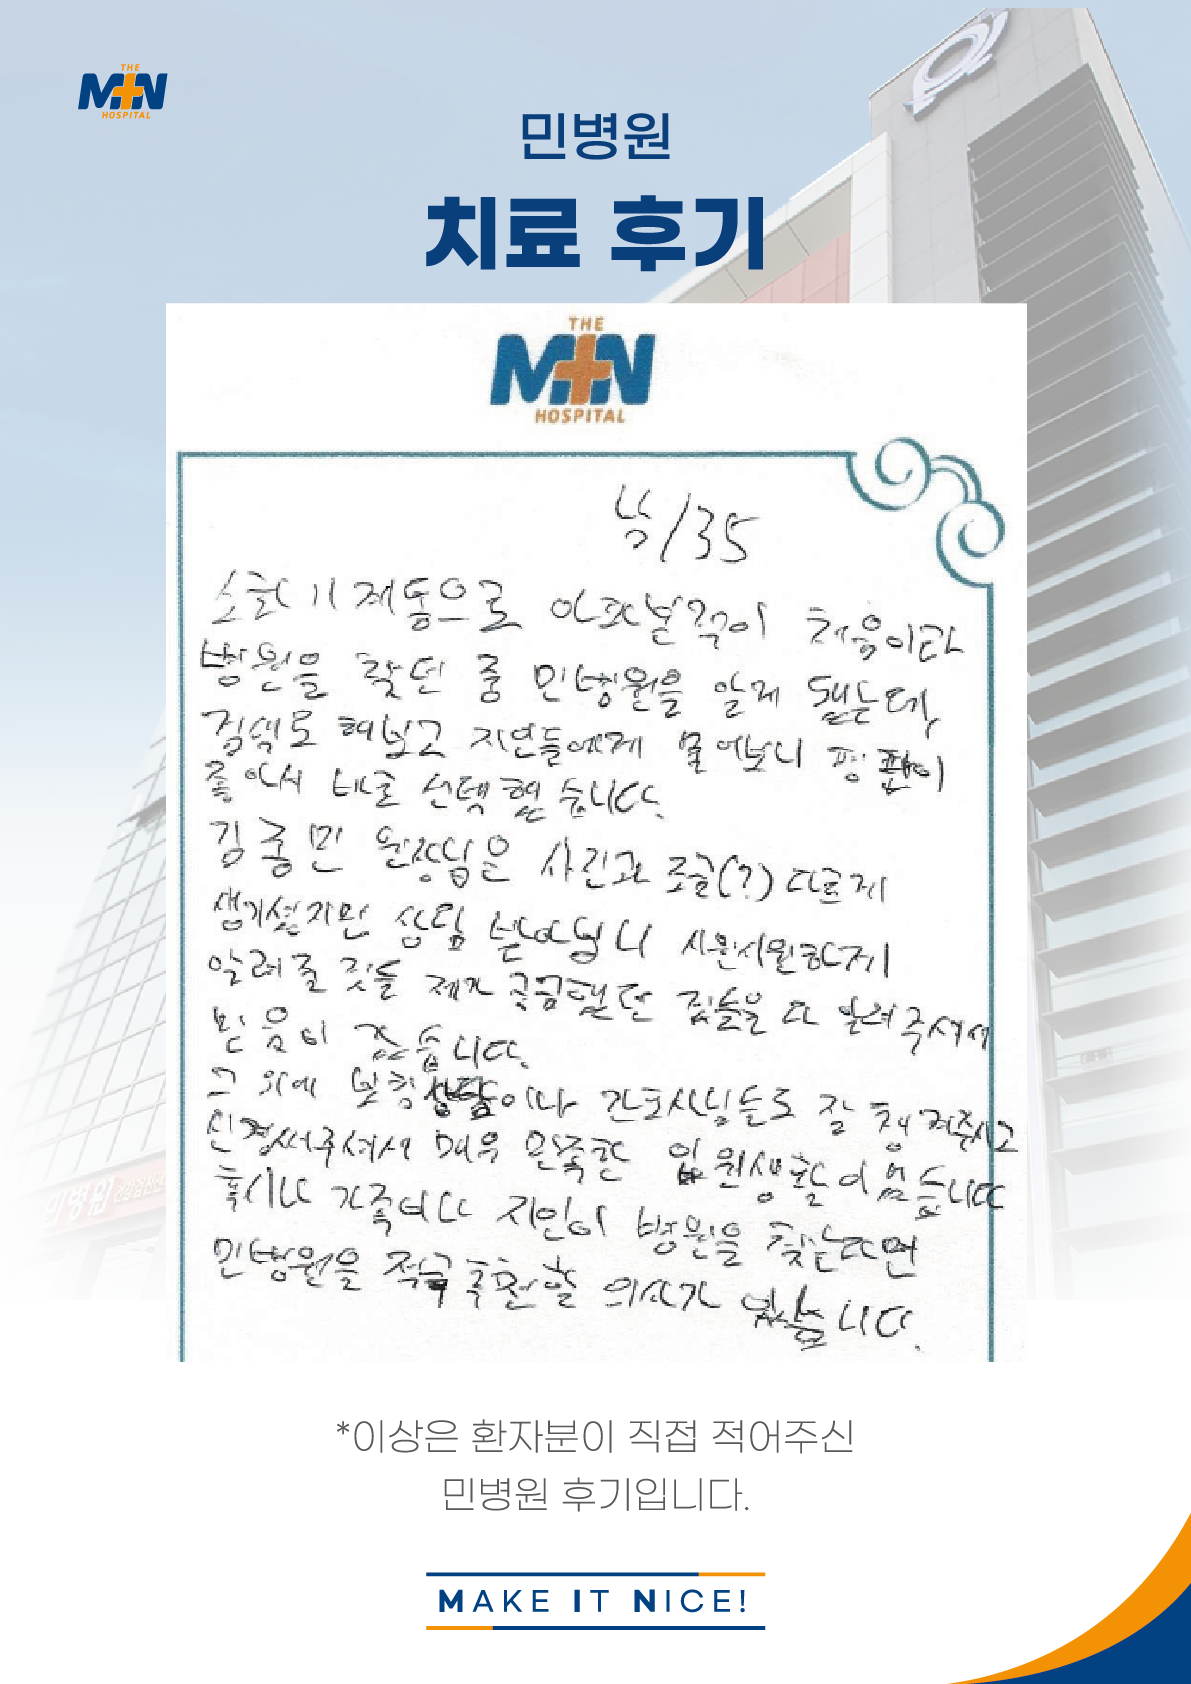 THE
MIN
HOSPITAL
민병원
치료 후기
THE
MIN
HOSPITAL
남/35
소화기계통으로 아파본적이 처음이라
병원을 찾던 중 민병원을 알게 됐는데,
검색도 해보고 지인들에게 물어보니 평판이
좋아서 바로 선택했습니다.
김종민 원장님은 사진과 조금(?) 다르게
생기셨지만 상담 받아보니 시원시원하게
알려줄 것들 제가 궁금했던 것들을 다 알려주셔서
믿음이 갔습니다.
그 외에 맞춤상담이나 간호사님들도 잘 챙겨주시고
신경써주셔서 매우 만족한 입원생활이었습니다
혹시나 가족이나 지인이 병원을 찾는다면
민병원을 적극 추천할 의사가 있습니다.
민병원
*이상은 환자분이 직접 적어주신
민병원 후기입니다.
MAKE IT NICE!